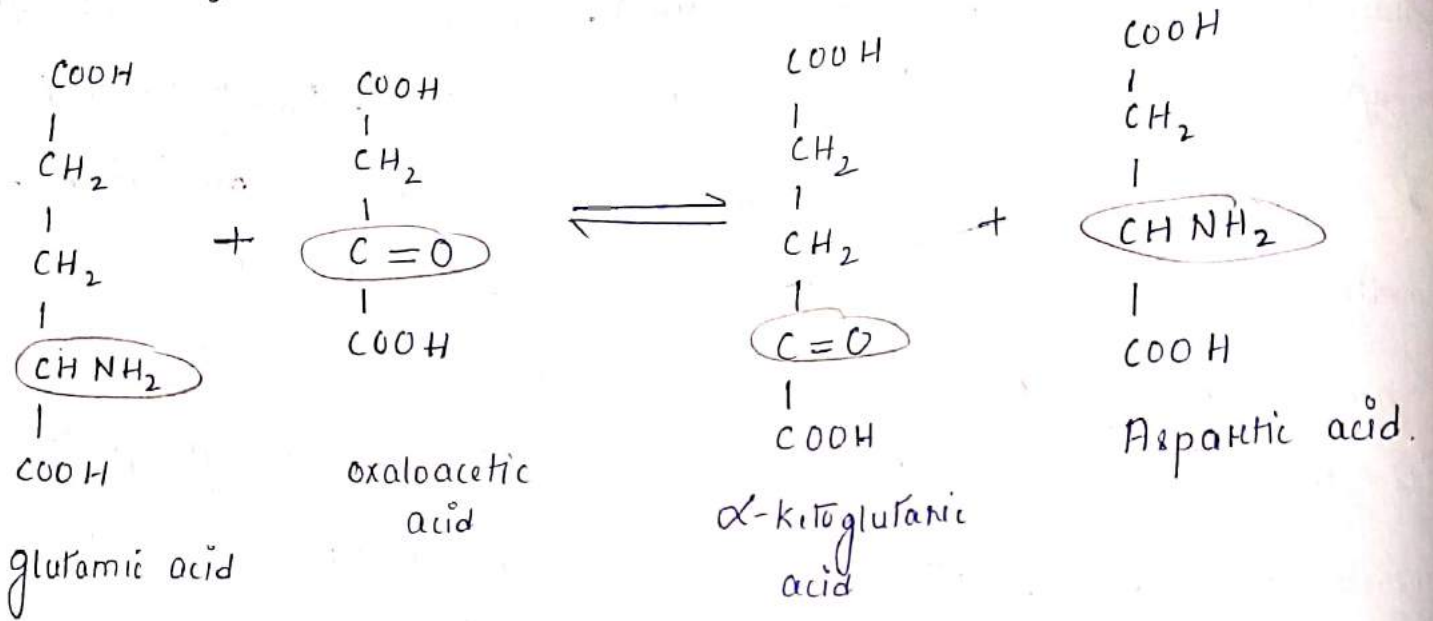 COOH
|
CH2
|
CH2
|
CH NH2
|
COOH
glutamic acid
+
COOH
|
CH2
|
C = O
|
COOH
oxaloacetic
acid
⇌
COOH
|
CH2
|
CH2
|
C = O
|
COOH
α-ketoglutaric
acid
+
COOH
|
CH2
|
CH NH2
|
COOH
Aspartic acid.